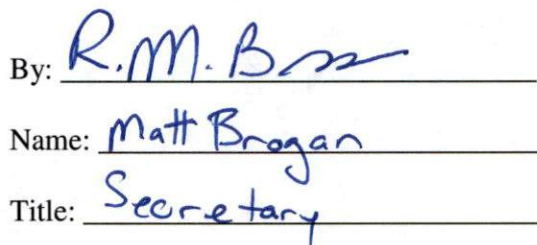 By: R. M. B
Name: Matt Brogan
Title: Secretary